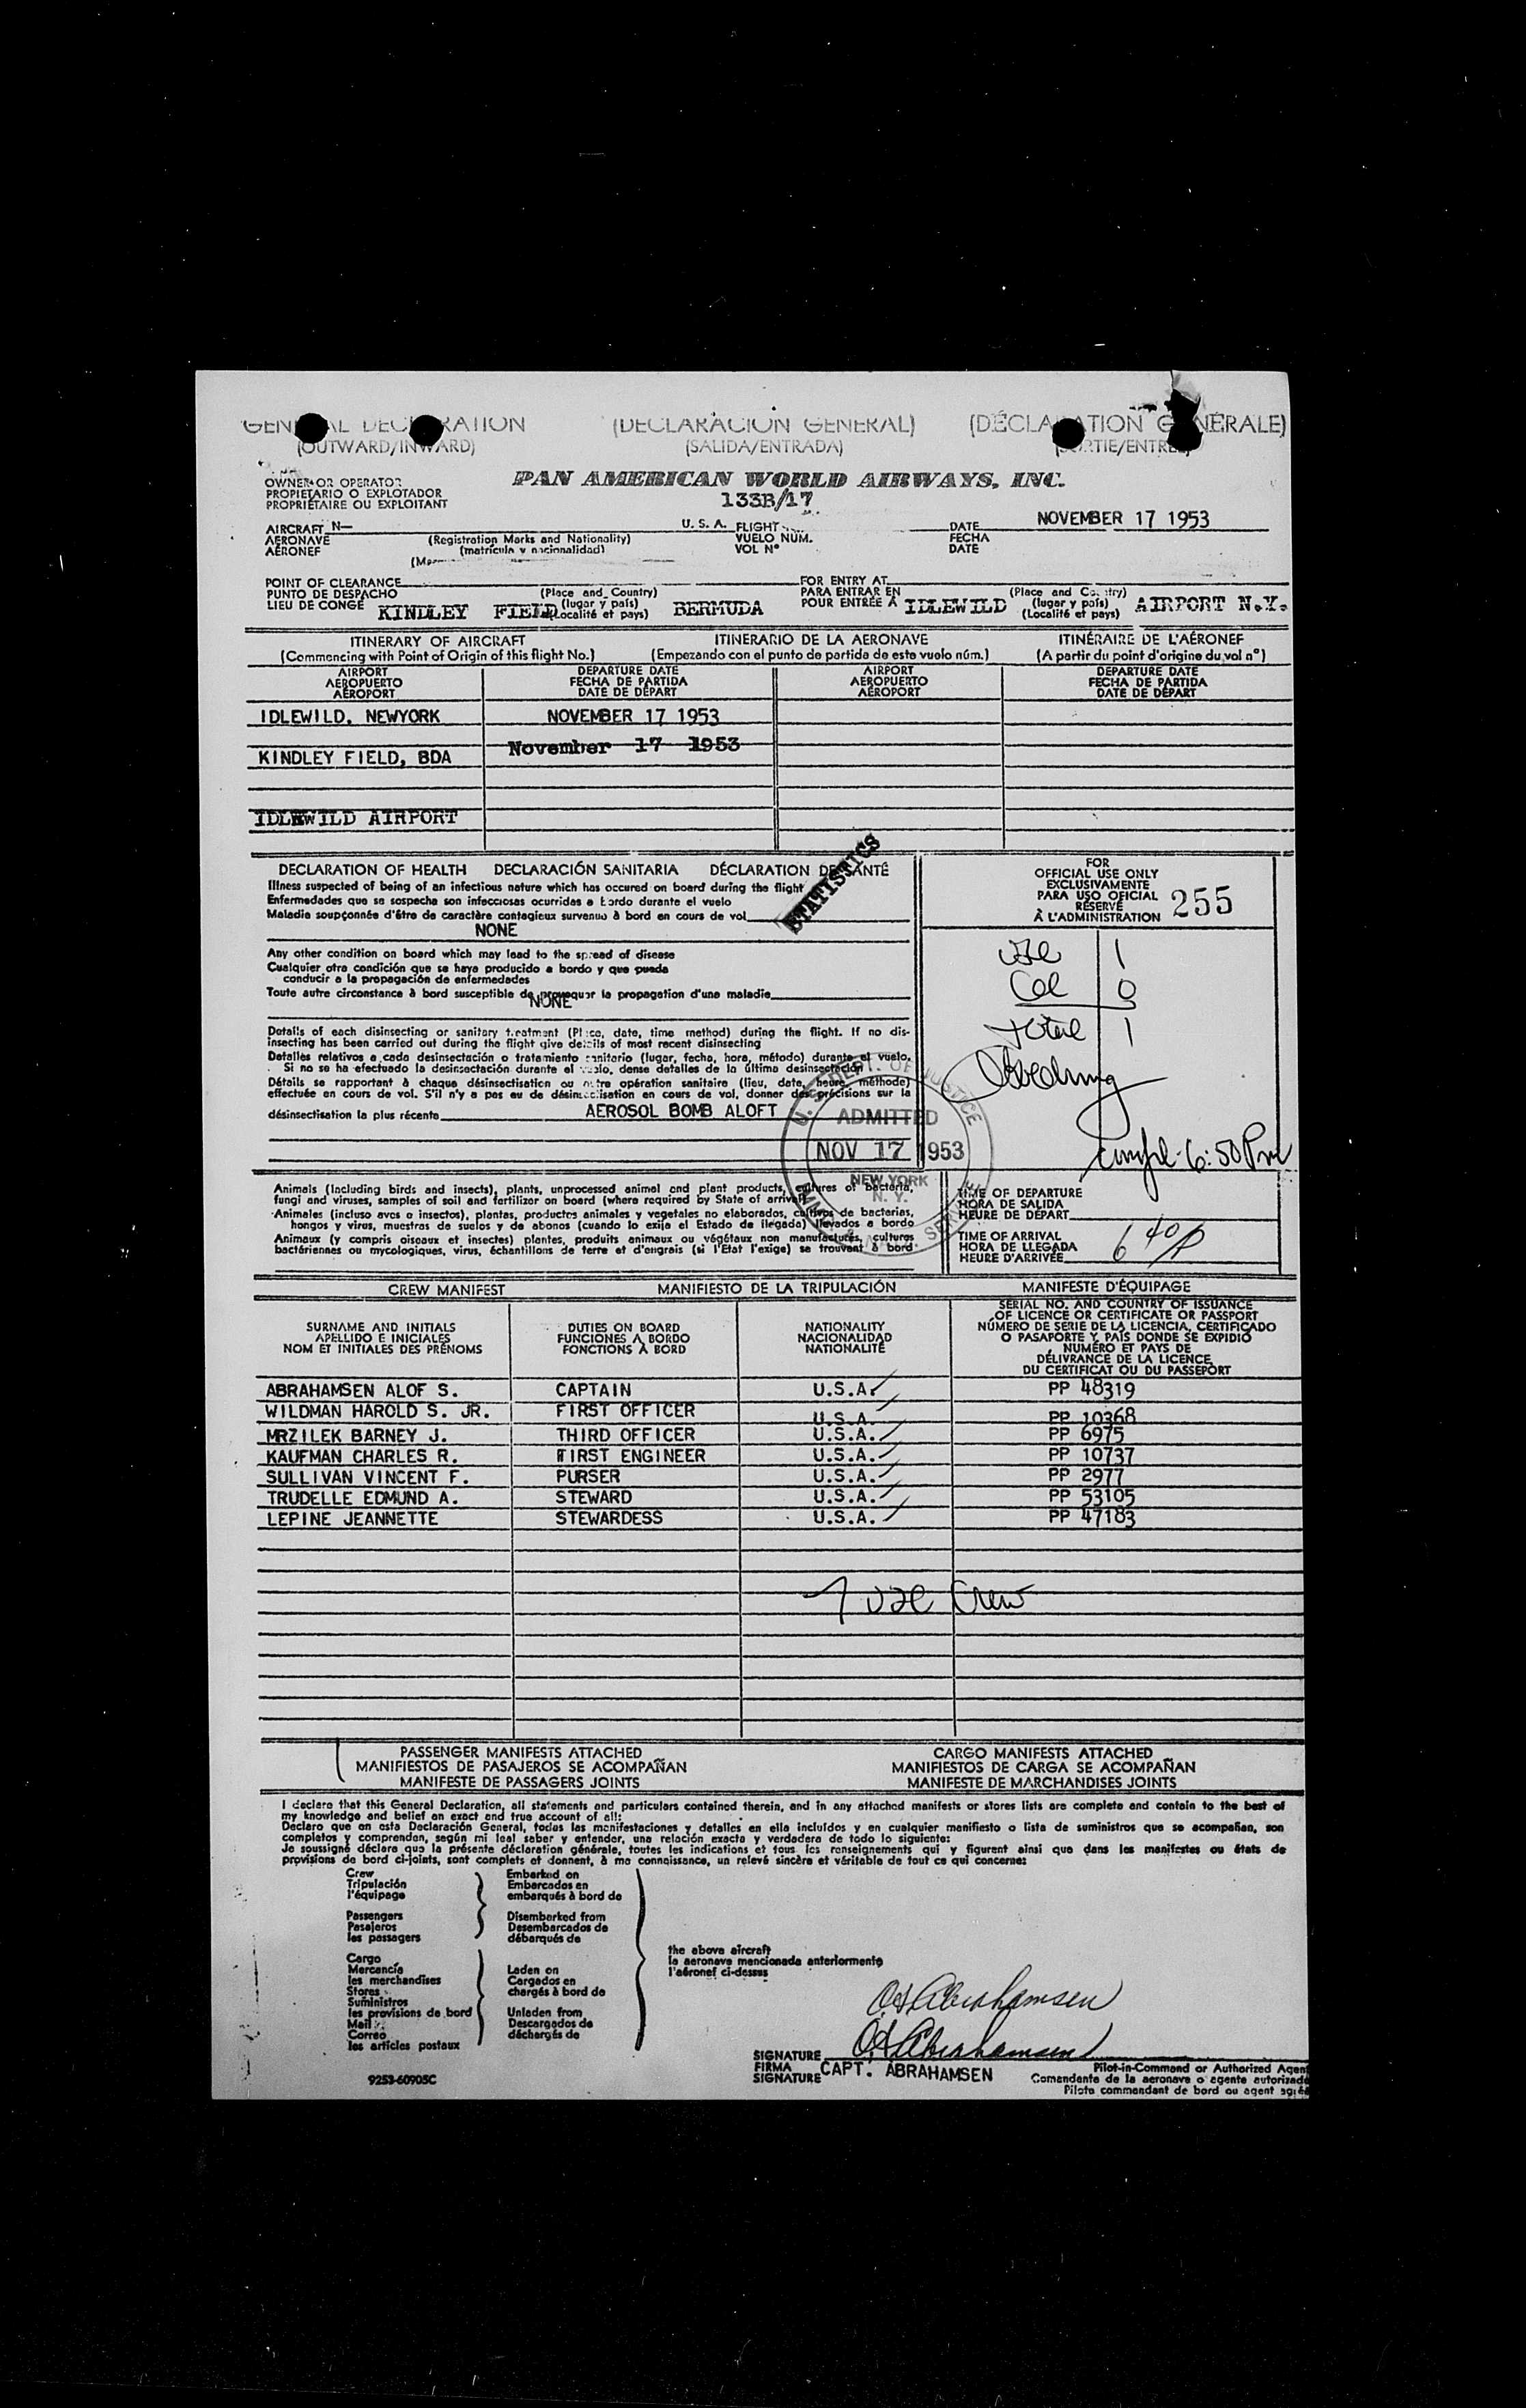 GENERAL DECLARATION (DECLARACIÓN GENERAL) (DÉCLARATION GÉNÉRALE)
(OUTWARD/INWARD) (SALIDA/ENTRADA) (SORTIE/ENTRÉE)
OWNER OR OPERATOR
PROPIETARIO O EXPLOTADOR
PROPRIÉTAIRE OU EXPLOITANT
PAN AMERICAN WORLD AIRWAYS, INC.
133B/17
AIRCRAFT N— U. S. A. FLIGHT DATE NOVEMBER 17 1953
AERONAVE (Registration Marks and Nationality) VUELO NÚM. FECHA
AÉRONEF (matrícula y nacionalidad) VOL N° DATE
POINT OF CLEARANCE (Place and Country) FOR ENTRY AT (Place and Country)
PUNTO DE DESPACHO (lugar y país) PARA ENTRAR EN (lugar y país)
LIEU DE CONGÉ KINDLEY FIELD (Localité et pays) BERMUDA POUR ENTRÉE À IDLEWILD (Localité et pays) AIRPORT N.Y.
ITINERARY OF AIRCRAFT ITINERARIO DE LA AERONAVE ITINÉRAIRE DE L'AÉRONEF
(Commencing with Point of Origin of this flight No.) (Empezando con el punto de partida de este vuelo núm.) (A partir du point d'origine du vol n°)
AIRPORT DEPARTURE DATE AIRPORT DEPARTURE DATE
AEROPUERTO FECHA DE PARTIDA AEROPUERTO FECHA DE PARTIDA
AÉROPORT DATE DE DÉPART AÉROPORT DATE DE DÉPART
IDLEWILD, NEWYORK NOVEMBER 17 1953
KINDLEY FIELD, BDA November 17 1953
IDLEWILD AIRPORT
DECLARATION OF HEALTH DECLARACIÓN SANITARIA DÉCLARATION DE SANTÉ
STATISTICS
Illness suspected of being of an infectious nature which has occured on board during the flight
Enfermedades que se sospecha son infecciosas ocurridas a bordo durante el vuelo
Maladie soupçonnée d'être de caractère contagieux survenue à bord en cours de vol
NONE
Any other condition on board which may lead to the spread of disease
Cualquier otra condición que se haya producido a bordo y que pueda
conducir a la propagación de enfermedades
Toute autre circonstance à bord susceptible de provoquer la propagation d'une maladie
NONE
Details of each disinsecting or sanitary treatment (Place, date, time method) during the flight. If no dis-
insecting has been carried out during the flight give details of most recent disinsecting
Detalles relativos a cada desinsectación o tratamiento sanitario (lugar, fecha, hora, método) durante el vuelo.
Si no se ha efectuado la desinsectación durante el vuelo, dense detalles de la última desinsectación
Détails se rapportant à chaque désinsectisation ou autre opération sanitaire (lieu, date, heure, méthode)
effectuée en cours de vol. S'il n'y a pas eu de désinsectisation en cours de vol, donner des précisions sur la
désinsectisation la plus récente AEROSOL BOMB ALOFT
FOR
OFFICIAL USE ONLY
EXCLUSIVAMENTE
PARA USO OFICIAL
RÉSERVÉ
À L'ADMINISTRATION 255
USC 1
Cal 0
Total 1
Compl. 6:50 PM
U. S. DEPT. OF JUSTICE
ADMITTED
NOV 17 1953
NEW YORK
N. Y.
Animals (Including birds and insects), plants, unprocessed animal and plant products, cultures of bacteria,
fungi and viruses, samples of soil and fertilizer on board (where required by State of arrival)
Animales (incluso aves o insectos), plantas, productos animales y vegetales no elaborados, cultivos de bacterias,
hongos y virus, muestras de suelos y de abonos (cuando lo exija el Estado de llegada) llevados a bordo
Animaux (y compris oiseaux et insectes) plantes, produits animaux ou végétaux non manufacturés, cultures
bactériennes ou mycologiques, virus, échantillons de terre et d'engrais (si l'Etat l'exige) se trouvant à bord
TIME OF DEPARTURE
HORA DE SALIDA
HEURE DE DÉPART
TIME OF ARRIVAL
HORA DE LLEGADA
HEURE D'ARRIVÉE 6 40 P
CREW MANIFEST MANIFIESTO DE LA TRIPULACIÓN MANIFESTE D'ÉQUIPAGE
SURNAME AND INITIALS
APELLIDO E INICIALES
NOM ET INITIALES DES PRÉNOMS
DUTIES ON BOARD
FUNCIONES A BORDO
FONCTIONS À BORD
NATIONALITY
NACIONALIDAD
NATIONALITÉ
SERIAL NO. AND COUNTRY OF ISSUANCE
OF LICENCE OR CERTIFICATE OR PASSPORT
NÚMERO DE SERIE DE LA LICENCIA, CERTIFICADO
O PASAPORTE Y PAÍS DONDE SE EXPIDIÓ
NUMÉRO ET PAYS DE
DÉLIVRANCE DE LA LICENCE,
DU CERTIFICAT OU DU PASSEPORT
ABRAHAMSEN ALOF S. CAPTAIN U.S.A. PP 48319
WILDMAN HAROLD S. JR. FIRST OFFICER U.S.A. PP 10368
MRZILEK BARNEY J. THIRD OFFICER U.S.A. PP 6975
KAUFMAN CHARLES R. FIRST ENGINEER U.S.A. PP 10737
SULLIVAN VINCENT F. PURSER U.S.A. PP 2977
TRUDELLE EDMUND A. STEWARD U.S.A. PP 53105
LEPINE JEANNETTE STEWARDESS U.S.A. PP 47183
7 USC Crew
PASSENGER MANIFESTS ATTACHED CARGO MANIFESTS ATTACHED
MANIFIESTOS DE PASAJEROS SE ACOMPAÑAN MANIFIESTOS DE CARGA SE ACOMPAÑAN
MANIFESTE DE PASSAGERS JOINTS MANIFESTE DE MARCHANDISES JOINTS
I declare that this General Declaration, all statements and particulars contained therein, and in any attached manifests or stores lists are complete and contain to the best of
my knowledge and belief an exact and true account of all:
Declaro que en esta Declaración General, todas las manifestaciones y detalles en ella incluídos y en cualquier manifiesto o lista de suministros que se acompañan, son
completos y comprenden, según mi leal saber y entender, una relación exacta y verdadera de todo lo siguiente:
Je soussigné déclare que la présente déclaration générale, toutes les indications et tous les renseignements qui y figurent ainsi que dans les manifestes ou états de
provisions de bord ci-joints, sont complets et donnent, à ma connaissance, un relevé sincère et véritable de tout ce qui concerne:
Crew Embarked on
Tripulación Embarcados en
l'équipage embarqués à bord de
Passengers Disembarked from
Pasajeros Desembarcados de
les passagers débarqués de
the above aircraft
la aeronave mencionada anteriormente
l'aéronef ci-dessus
Cargo
Mercancía Laden on
les merchandises Cargados en
Stores chargés à bord de
Suministros
les provisions de bord Unladen from
Mail Descargados de
Correo déchargés de
les articles postaux
O S Abrahamsen
O S Abrahamsen
SIGNATURE
FIRMA CAPT. ABRAHAMSEN
SIGNATURE
Pilot-in-Command or Authorized Agent
Comandante de la aeronave o agente autorizado
Pilote commandant de bord ou agent agréé
9253-60905C